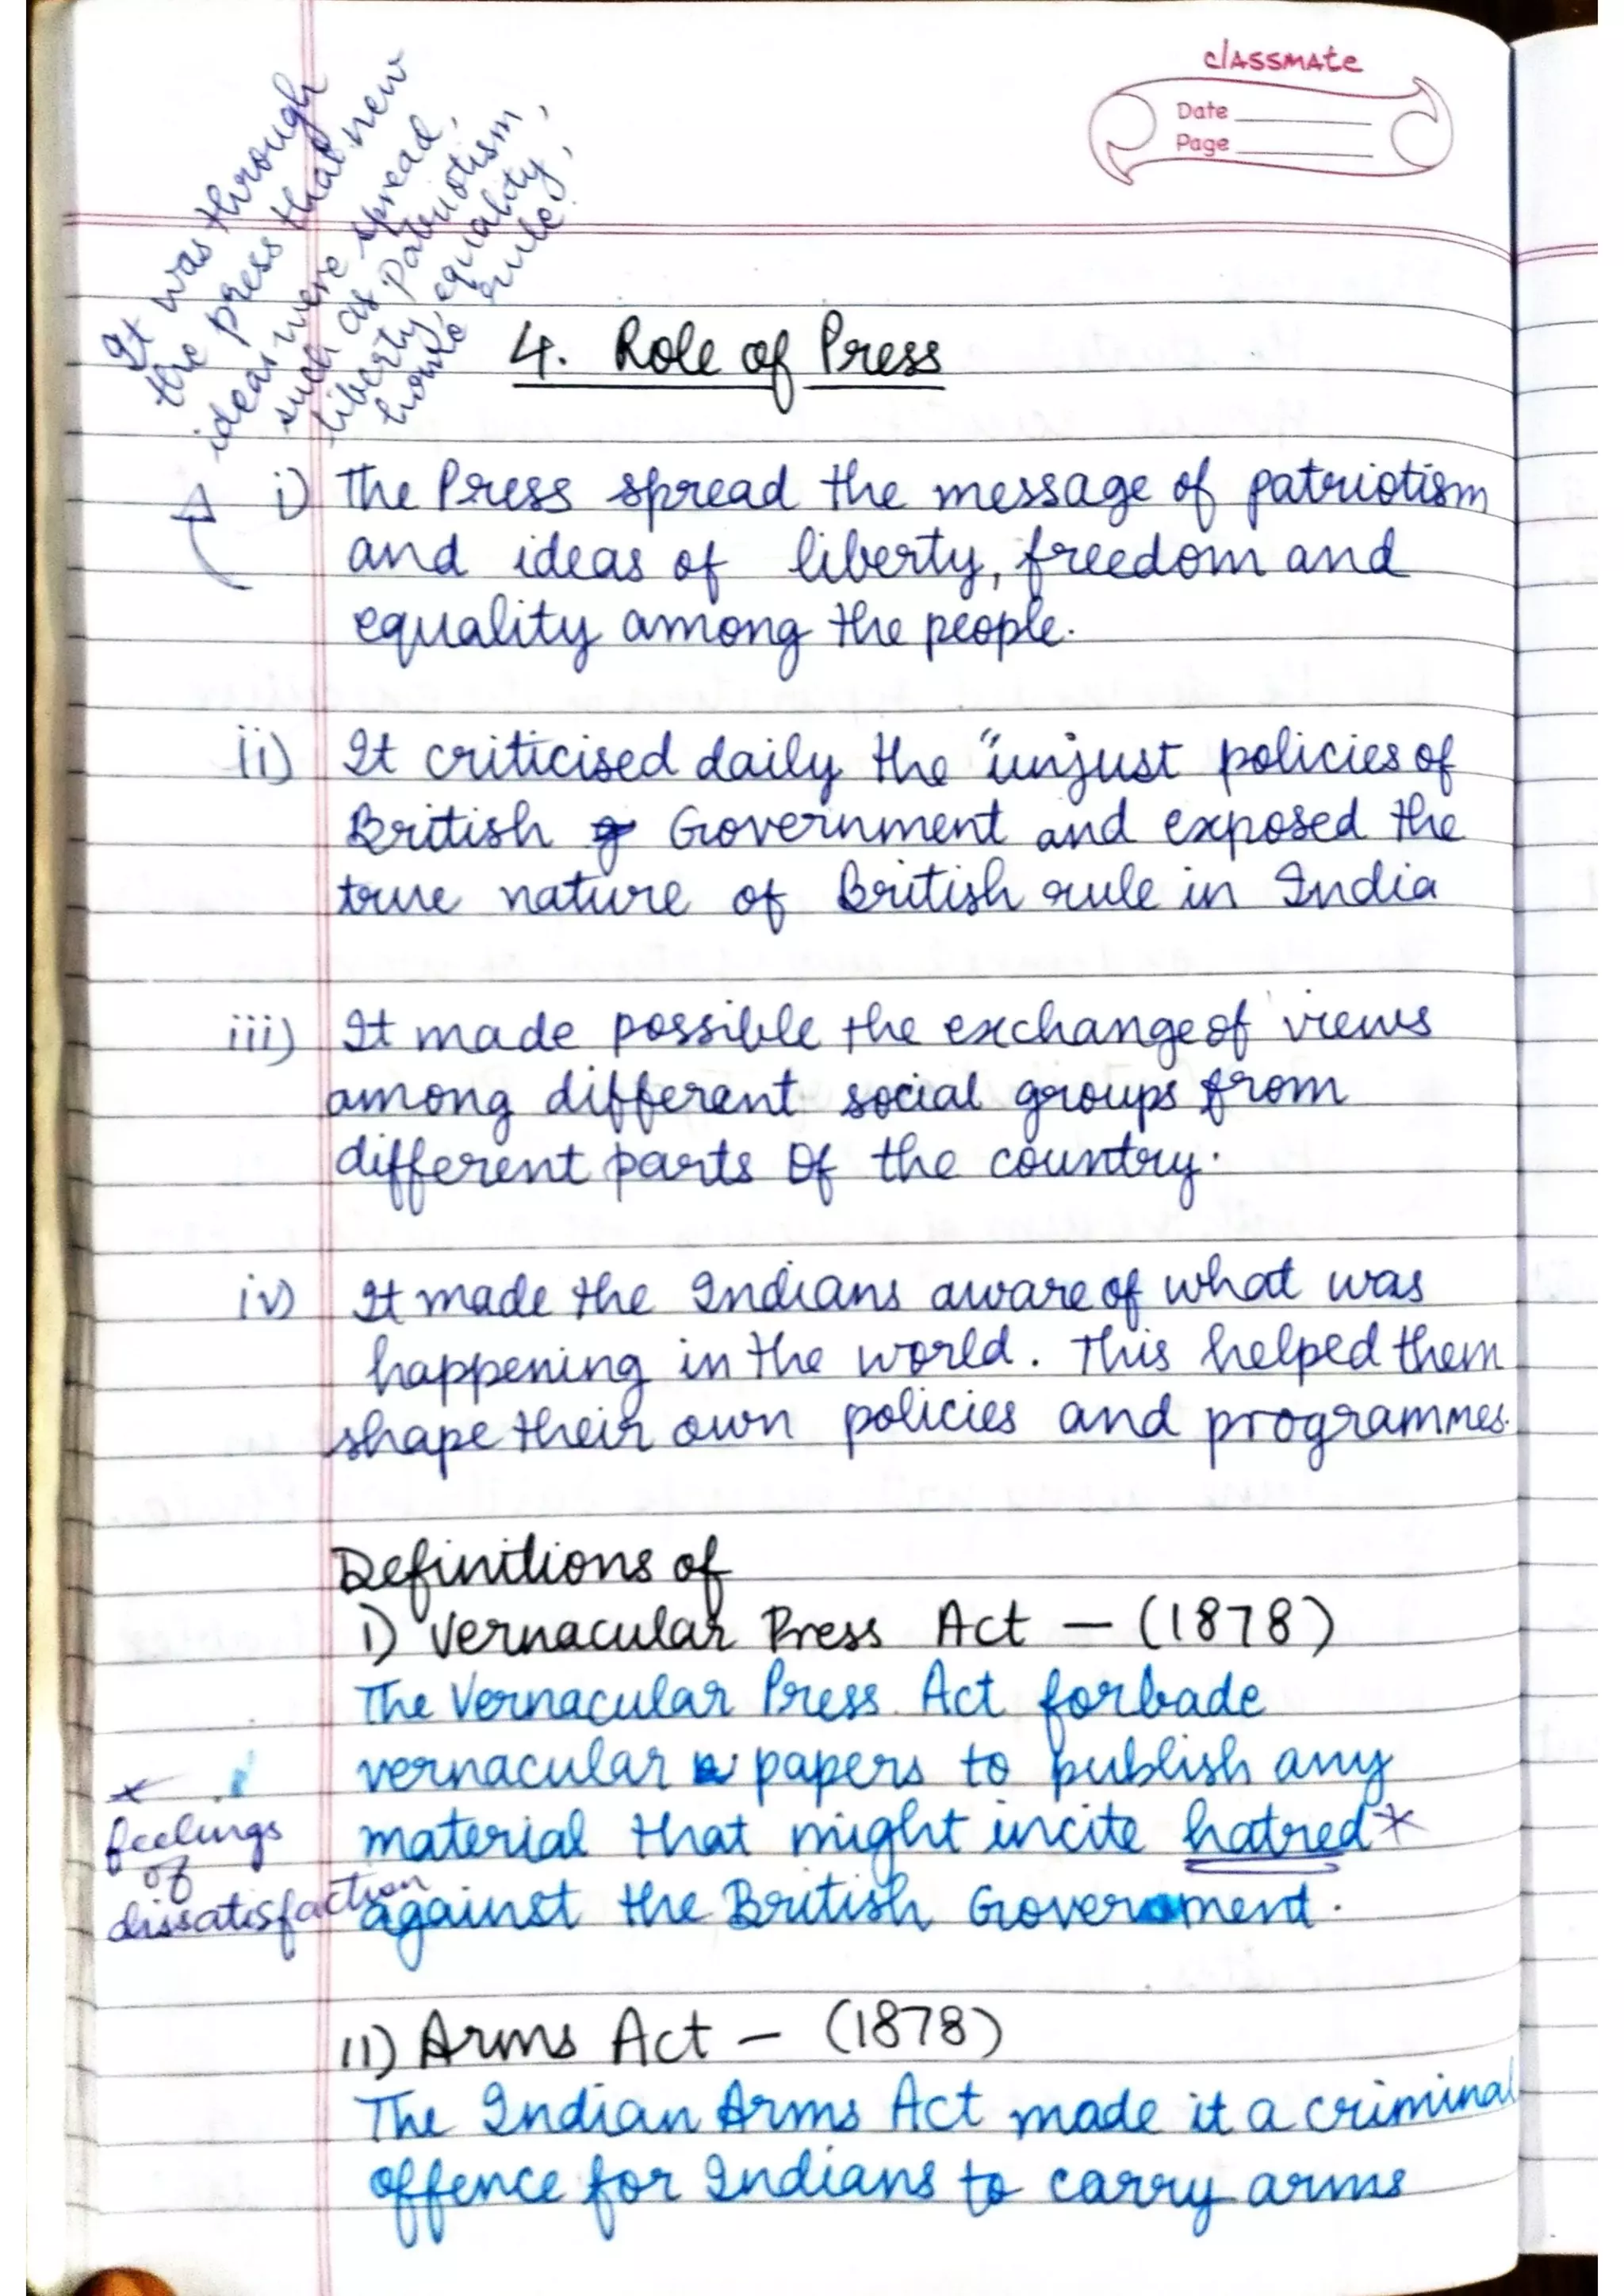 classmate
Date
Page
It was through
the press that new
ideas were spread,
such as Patriotism,
liberty, equality,
home rule.
4. Role of Press
i) The Press spread the message of patriotism
and ideas of liberty, freedom and
equality among the people.
ii) It criticised daily the "unjust policies of
British Government and exposed the
true nature of British rule in India
iii) It made possible the exchange of views
among different social groups from
different parts of the country.
iv) It made the Indians aware of what was
happening in the world. This helped them
shape their own policies and programmes.
Definitions of
i) Vernacular Press Act – (1878)
The Vernacular Press Act forbade
vernacular papers to publish any
material that might incite hatred*
against the British Government.
*
feelings
of
dissatisfaction
ii) Arms Act – (1878)
The Indian Arms Act made it a criminal
offence for Indians to carry arms